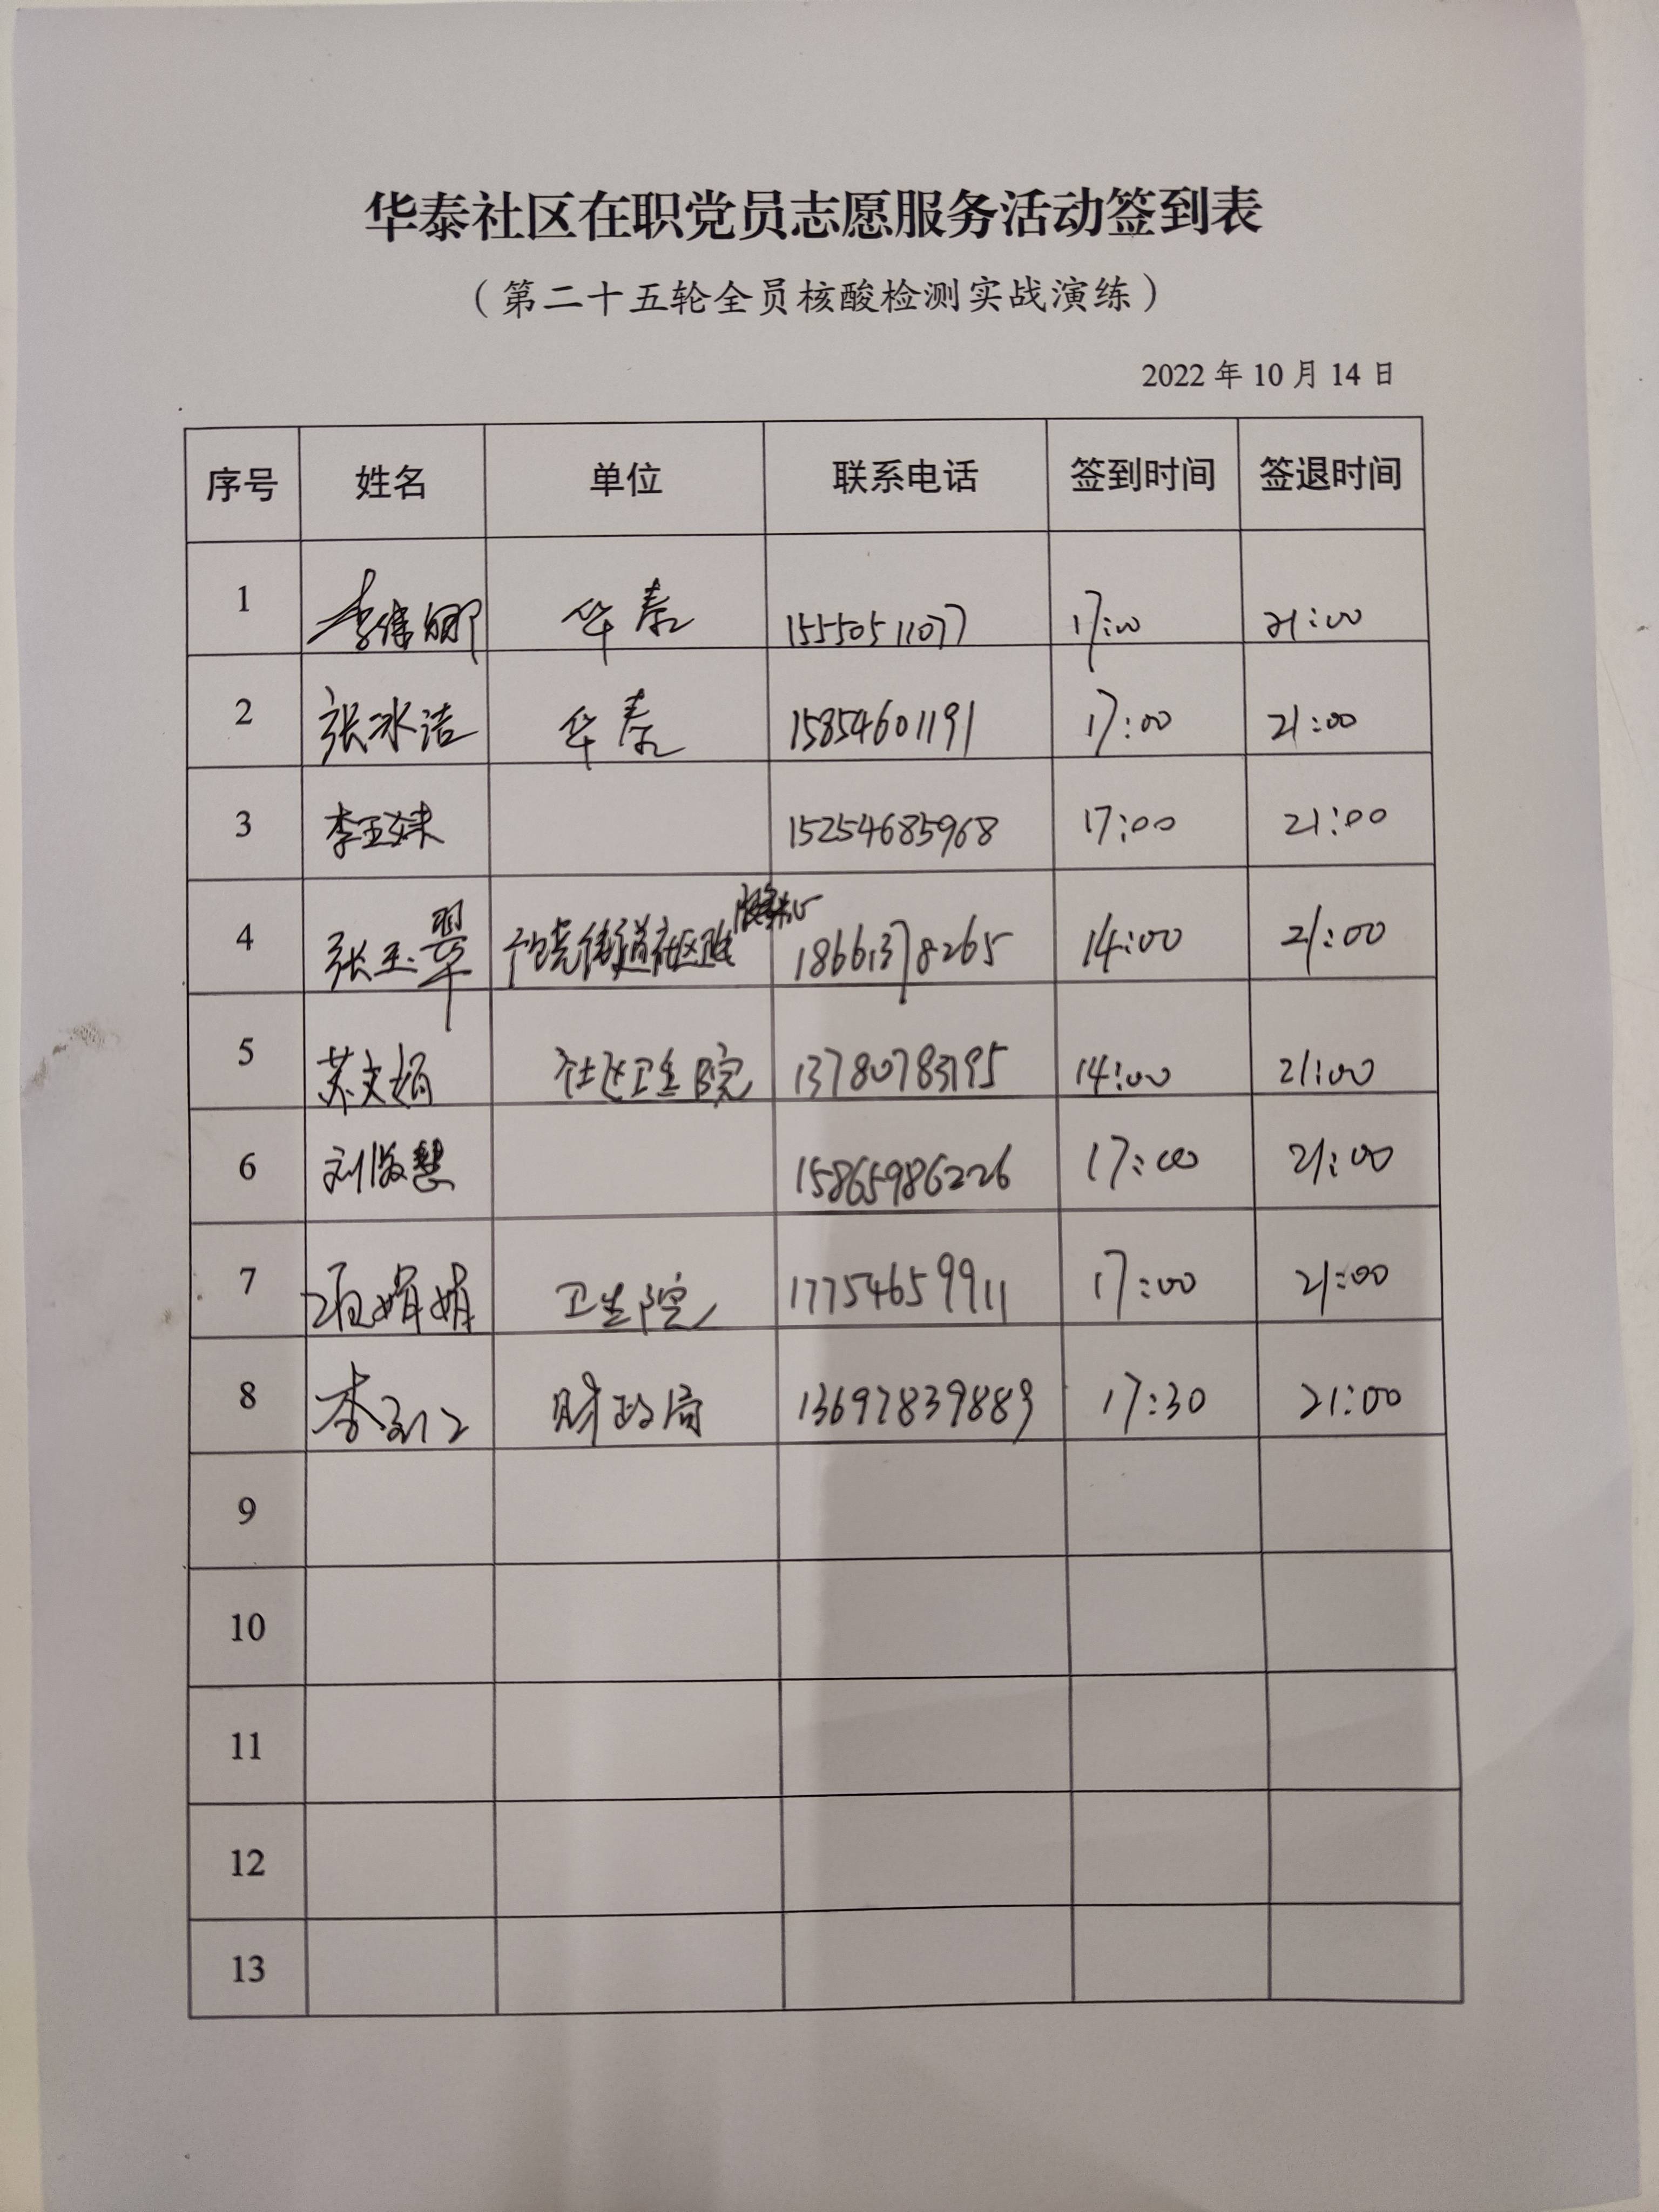 华泰社区在职党员志愿服务活动签到表
（第二十五轮全员核酸检测实战演练）
2022 年 10 月 14 日
序号 姓名 单位 联系电话 签到时间 签退时间
1 李伟娜 华泰 15550511077 17:00 21:00
2 张冰洁 华泰 15854601191 17:00 21:00
3 李玉妹 15254685968 17:00 21:00
4 张玉翠 街道社区 18661378265 14:00 21:00
5 苏文娟 社区卫生院 13780783195 14:00 21:00
6 刘淑慧 15865986226 17:00 21:00
7 娟娟 卫生院 17754659911 17:00 21:00
8 李 财政局 13697839889 17:30 21:00
9
10
11
12
13